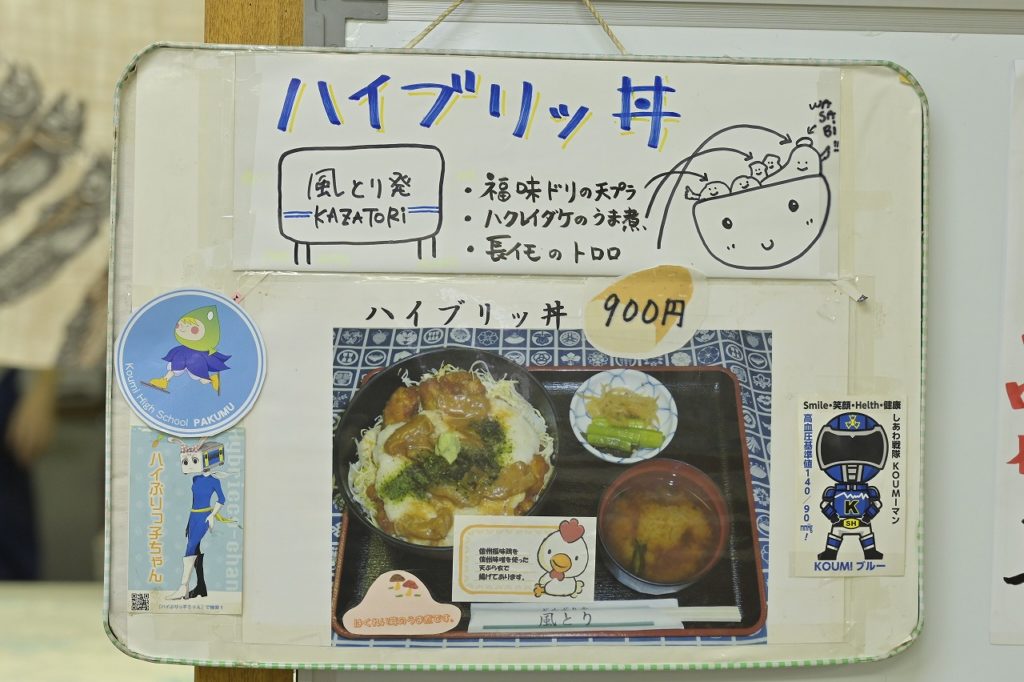 ハイブリッ丼
WA
SA
BI!!
風とり発
KAZATORi
・福味ドリの天プラ
・ハクレイダケのうま煮、
・長イモのトロロ
ハイブリッ丼 900円
Koumi High School PAKUMU
ハイぶりっ子ちゃん
hybrico-chan
「ハイぶりっ子ちゃん」で検索!
信州福味鶏を
信州味噌を使った
天ぷら衣で
揚げております。
はくれい茸のうま煮です。
風とり
Smile・笑顔・Helth・健康
しあわ戦隊 KOUMIーマン
高血圧基準値140/90mmHg!
K
SH
KOUMI ブルー